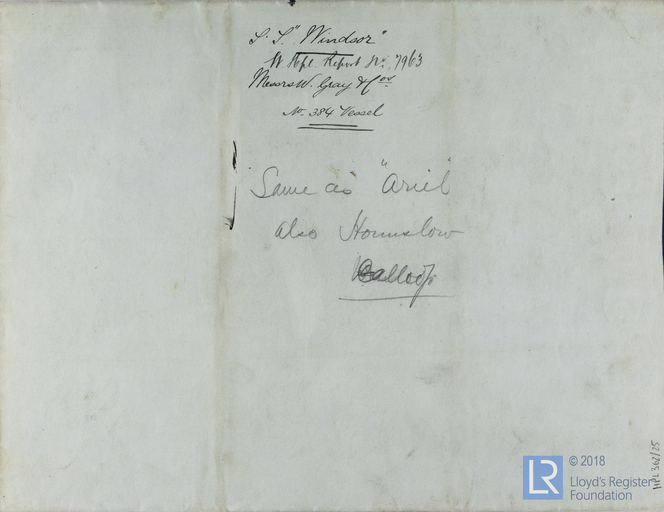 S.S. "Windsor"
W Hpl Report No. 7963
Messrs W. Gray & Cos.
No. 384 Vessel
Same as "Ariel"
also Hounslow
© 2018
Lloyd's Register
Foundation
LR
HPL362/25